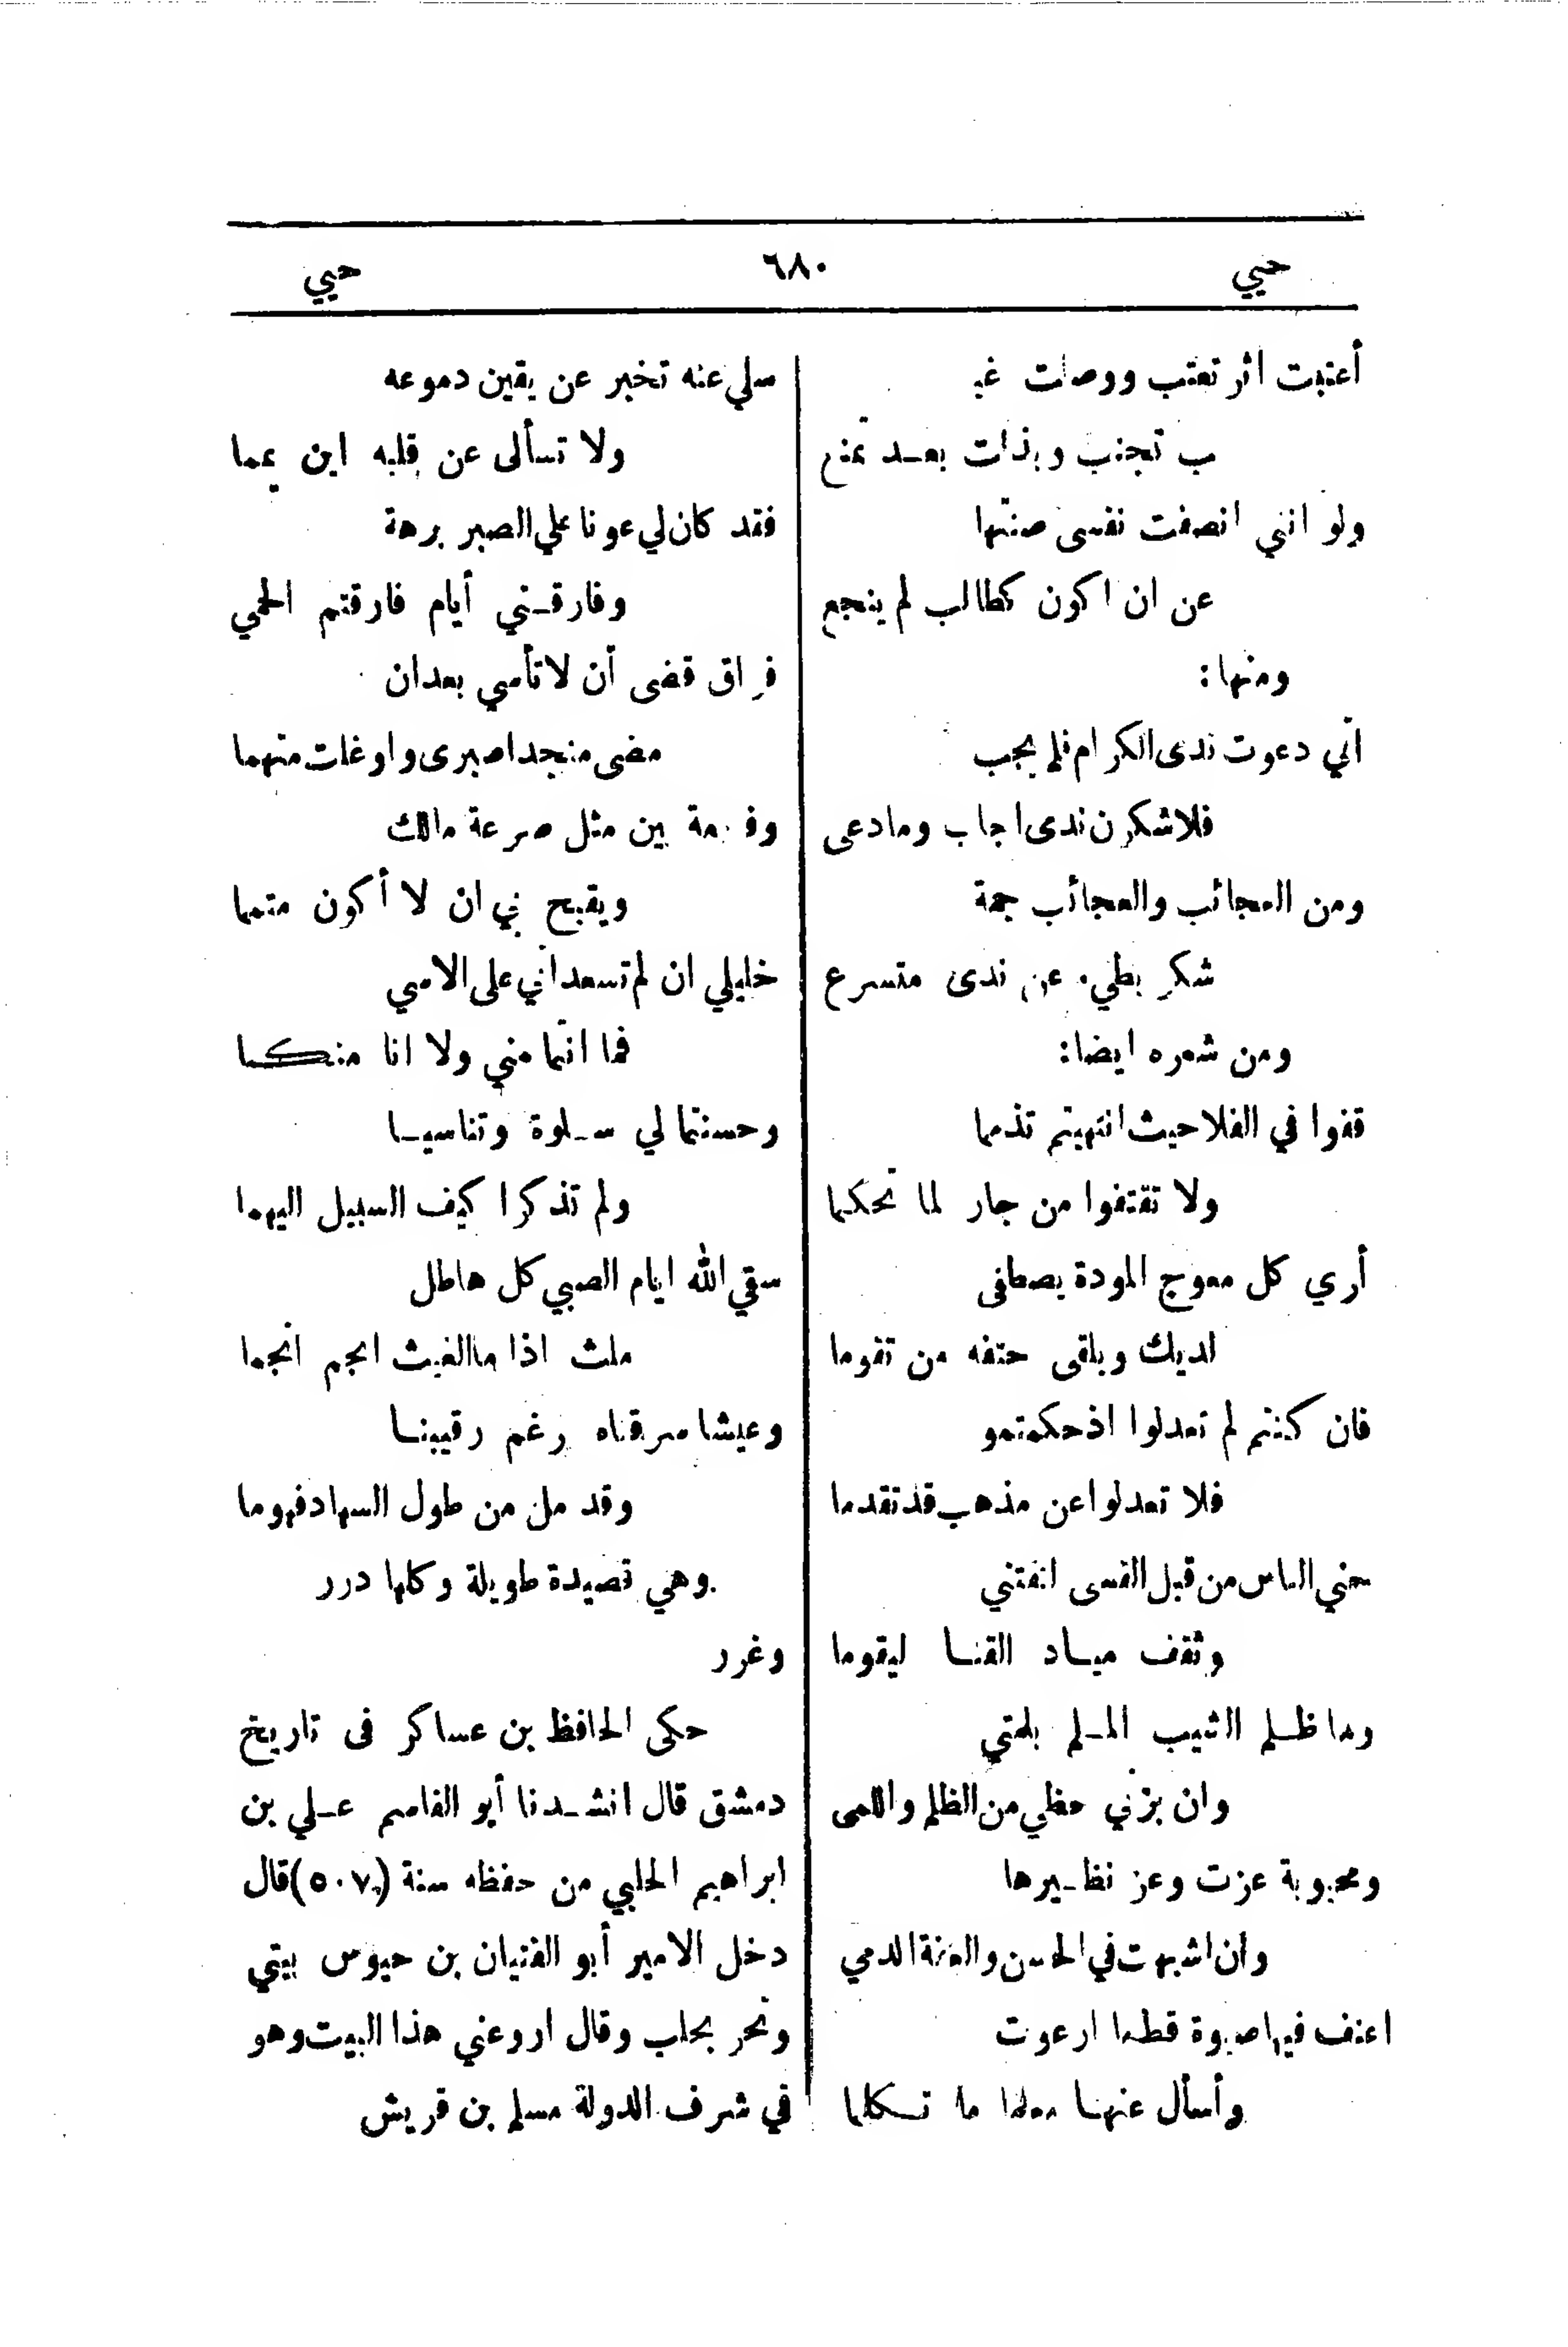 حيي ٦٨٠ حيي
أعتبت اثر تعتب ووصلت غـ
ب تجنب وبذلت بعـد تمنع
ولو انني انصفت نفسى صنتها
عن ان اكون كطالب لم ينجع
ومنها:
اني دعوت ندى الكرام فلم يجب
فلاشكرن ندى اجاب وما دعى
ومن العجائب والعجائب جمة
شكر بطيء عن ندى متسرع
ومن شعره ايضا:
قفوا في الفلا حيث انتهيتم تذمما
ولا تقتفوا من جار لما تحكما
أري كل معوج المودة يصطفى
لديك ويلقى حتفه من تقوما
فان كنتم لم تعدلوا اذ حكمتمو
فلا تعدلوا عن مذهب قد تقدما
حني الناس من قبل القسى لتقتني
وثقف ميـاد القنـا ليقوما
وما ظـلم الشيب المـلم بلمتي
وان بزني حظي من الظلم واللمى
ومحبوبة عزت وعز نظـيرها
وان اشبهت في الحسن والعفة الدمي
اعنف فيها صبوة قط ما ارعوت
وأسأل عنهـا معلما ما تـكلما
سلي عنه تخبر عن يقين دموعه
ولا تسألى عن قلبه اين يمما
فقد كان لي عونا علي الصبر برهة
وفارقـني أيام فارقتم الحمي
فراق قضى أن لا تأسي بعد ان
مضى منجدا صبرى واوغلت متهما
وفجعة بين مثل صرعة مالك
ويقبح بي ان لا أكون متمما
خليلي ان لم تسعداني على الاسي
فما انتما مني ولا انا منكـما
وحسنتما لي سـلوة وتناسيـا
ولم تذكرا كيف السبيل اليهما
سقي الله ايام الصبي كل هاطل
ملث اذا ما الغيث انجم انجما
وعيشا سرقناه رغم رقيبنـا
وقد مل من طول السهاد فهوما
وهي قصيدة طويلة وكلها درر
وغرر
حكى الحافظ بن عساكر فى تاريخ
دمشق قال انشـدنا أبو القاسم عـلي بن
ابراهيم الحلبي من حفظه سنة (٥٠٧) قال
دخل الامير أبو الفتيان بن حيوس بيتي
ونحن بحلب وقال اروعني هذا البيت وهو
في شرف الدولة مسلم بن قريش